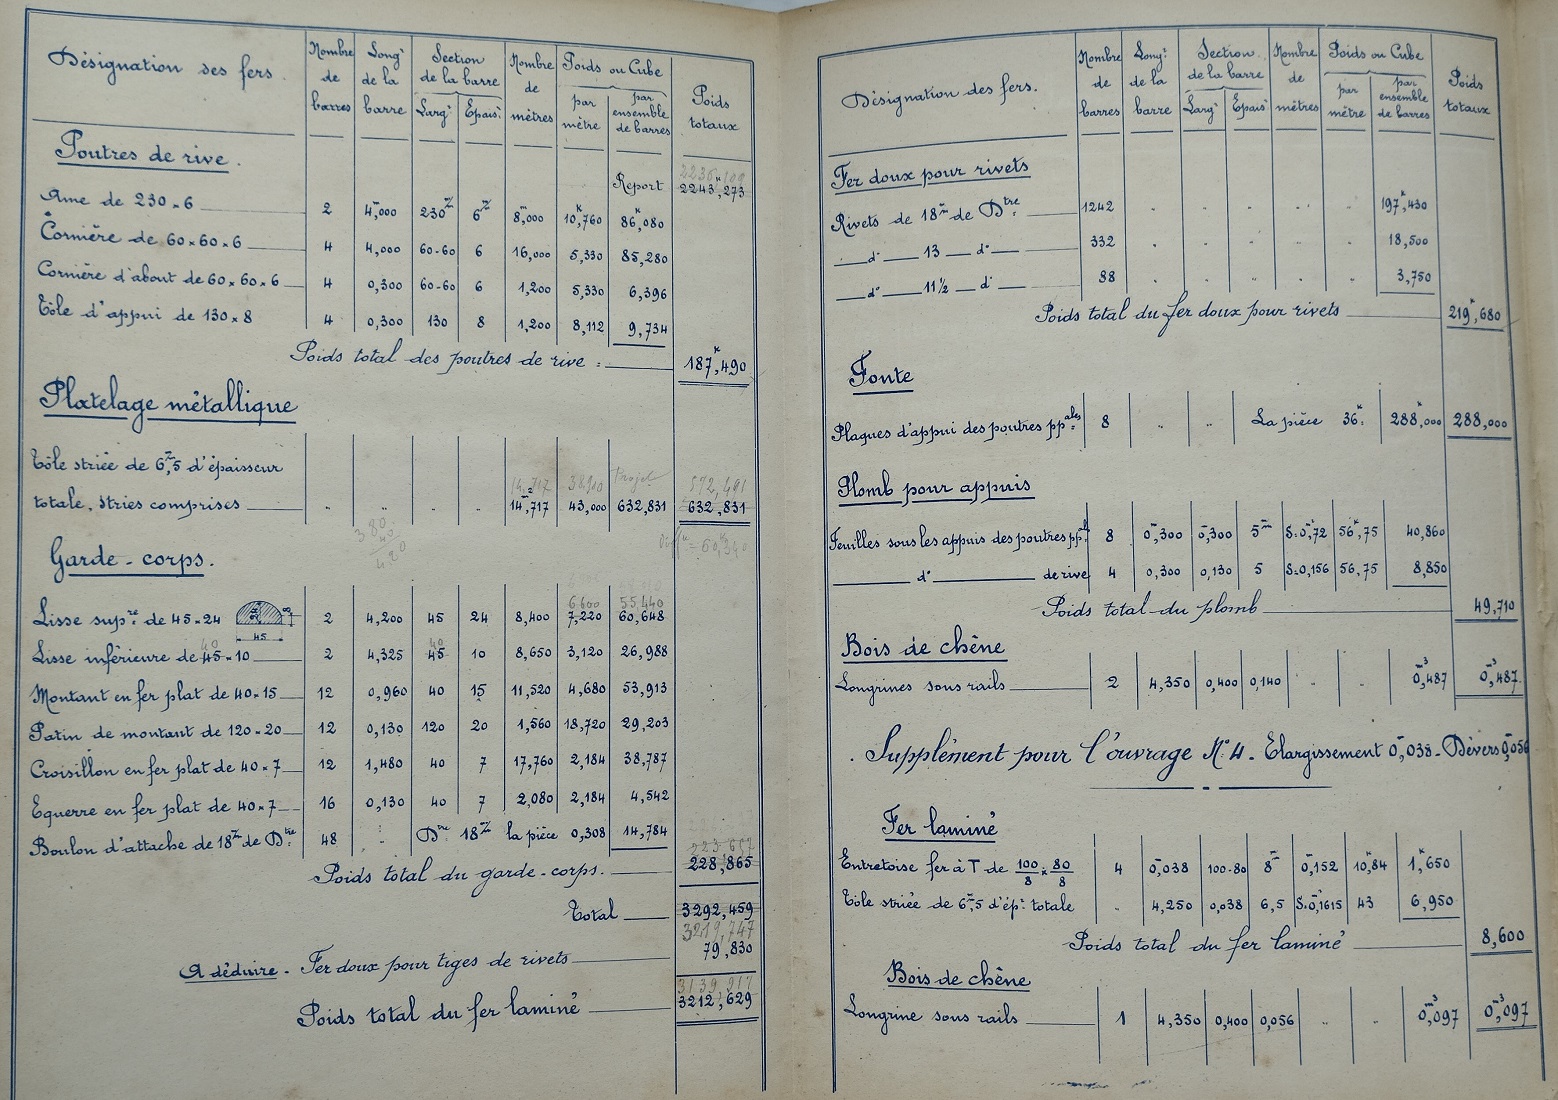 Désignation des fers.
Nombre de barres
Long.r de la barre
Section de la barre
Larg.r
Épais.r
Nombre de mètres
Poids ou Cube
par mètre
par ensemble de barres
Poids totaux
Poutres de rive.
2236,109
Report 2243k,273
Ame de 230 × 6 2 4m,000 230 6 8m,000 10k,760 86k,080
Cornière de 60 × 60 × 6 4 4,000 60-60 6 16,000 5,330 85,280
Cornière d'about de 60 × 60 × 6 4 0,300 60-60 6 1,200 5,330 6,396
Tôle d'appui de 130 × 8 4 0,300 130 8 1,200 8,112 9,734
Poids total des poutres de rive = 187k,490
Platelage métallique
Tôle striée de 6,5 d'épaisseur
14,717 38,910 Projet 572,491
totale, stries comprises " " " " 14,717 43,000 632,831 632,831
380
40
420
Diff = 60k,340
Garde-corps.
6600 55,440
Lisse sup.re de 45 × 24 24 8 45 2 4,200 45 24 8,400 7,220 60,648
40 40
Lisse inférieure de 45 × 10 2 4,325 45 10 8,650 3,120 26,988
Montant en fer plat de 40 × 15 12 0,960 40 15 11,520 4,680 53,913
Patin de montant de 120 × 20 12 0,130 120 20 1,560 18,720 29,203
Croisillon en fer plat de 40 × 7 12 1,480 40 7 17,760 2,184 38,787
Equerre en fer plat de 40 × 7 16 0,130 40 7 2,080 2,184 4,542
Boulon d'attache de 18 de Dtre 48 " Dtre 18 la pièce 0,308 14,784
223,657
Poids total du garde-corps. 228,865
Total 3292,459
3219,747
A déduire - Fer doux pour tiges de rivets 79,830
3139,917
Poids total du fer laminé 3212,629
Désignation des fers.
Nombre de barres
Long.r de la barre
Section de la barre
Larg.r
Épais.r
Nombre de mètres
Poids ou Cube
par mètre
par ensemble de barres
Poids totaux
Fer doux pour rivets
Rivets de 18m de Dtre 1242 " " " " " 197k,430
d° 13 d° 332 " " " " " 18,500
d° 11 1/2 d° 88 " " " " " 3,750
Poids total du fer doux pour rivets 219k,680
Fonte
Plaques d'appui des poutres ppales 8 " " La pièce 36k 288k,000 288,000
Plomb pour appuis
Feuilles sous les appuis des poutres ppales 8 0m,300 0,300 5m S=0m,72 56k,75 40,860
d° de rive 4 0,300 0,130 5 S=0,156 56,75 8,850
Poids total du plomb 49,710
Bois de chêne
Longrines sous rails 2 4,350 0,400 0,140 " " 0m3,487 0m3,487
Supplément pour l'ouvrage N° 4 - Elargissement 0m,038 - Dévers 0m,056
Fer laminé
Entretoise fer à T de 100/8 × 80/8 4 0m,038 100-80 8m 0m,152 10k,84 1k,650
Tôle striée de 6m,5 d'ép.r totale " 4,250 0,038 6,5 S=0,1615 43 6,950
Poids total du fer laminé 8,600
Bois de chêne
Longrine sous rails 1 4,350 0,400 0,056 " " 0m3,097 0m3,097